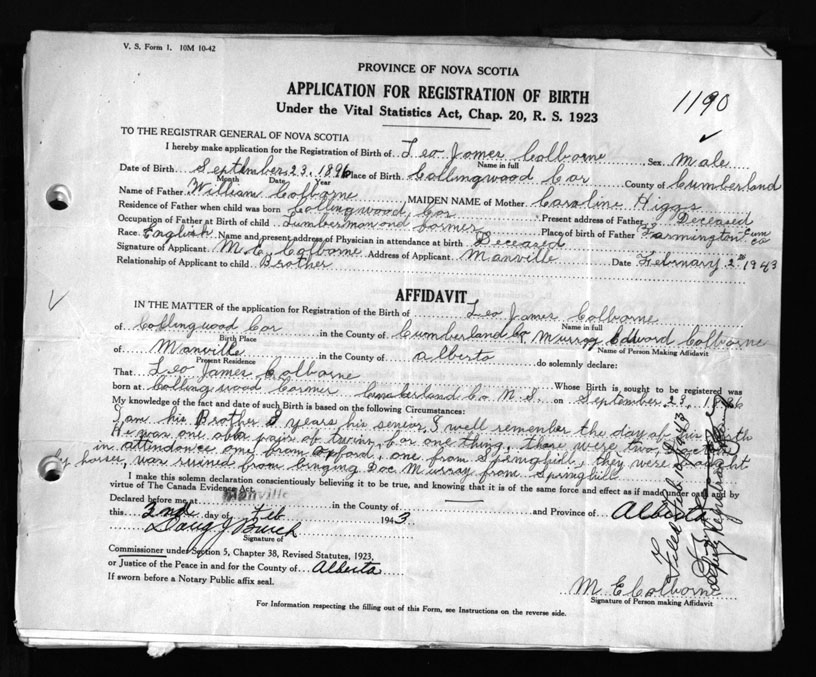 V. S. Form 1. 10M 10-42
PROVINCE OF NOVA SCOTIA
APPLICATION FOR REGISTRATION OF BIRTH
Under the Vital Statistics Act, Chap. 20, R. S. 1923
1190
TO THE REGISTRAR GENERAL OF NOVA SCOTIA
I hereby make application for the Registration of Birth of Leo James Colborne Sex Male
Name in full
Date of Birth September 23, 1896 Place of Birth Collingwood Cor County of Cumberland
Month Date Year
Name of Father William Colborne MAIDEN NAME of Mother Caroline Higgs
Residence of Father when child was born Collingwood, Cor Present address of Father Deceased
Occupation of Father at Birth of child Lumberman and farmer Place of birth of Father Farmington Cum Co
Race English Name and present address of Physician in attendance at birth Deceased
Signature of Applicant M. E. Colborne Address of Applicant Manville Date February 2nd 1943
Relationship of Applicant to child Brother
AFFIDAVIT
IN THE MATTER of the application for Registration of the Birth of Leo James Colborne
Name in full
of Collingwood Cor in the County of Cumberland Co Murray Edward Colborne
Birth Place Name of Person Making Affidavit
of Manville in the County of Alberta do solemnly declare:
Present Residence
That Leo James Colborne Whose Birth is sought to be registered was
born at Collingwood Corner Cumberland Co N. S. on September 23, 1896
My knowledge of the fact and date of such Birth is based on the following Circumstances:
I am his Brother 8 years his senior, I well remember the day of his birth
He was one of a pair of twins, for one thing, there were two
in attendance one from Oxford, one from Springhill, they were brought
by horses, was ruined from bringing Doc Murray from Springhill
I make this solemn declaration conscientiously believing it to be true, and knowing that it is of the same force and effect as if made under oath and by
virtue of The Canada Evidence Act.
Declared before me at Manville in the County of and Province of Alberta
this 2nd day of Feb 1943
Signature of
Commissioner under Section 5, Chapter 38, Revised Statutes, 1923,
or Justice of the Peace in and for the County of Alberta
If sworn before a Notary Public affix seal.
M E Colborne
Signature of Person making Affidavit
For Information respecting the filling out of this Form, see Instructions on the reverse side.